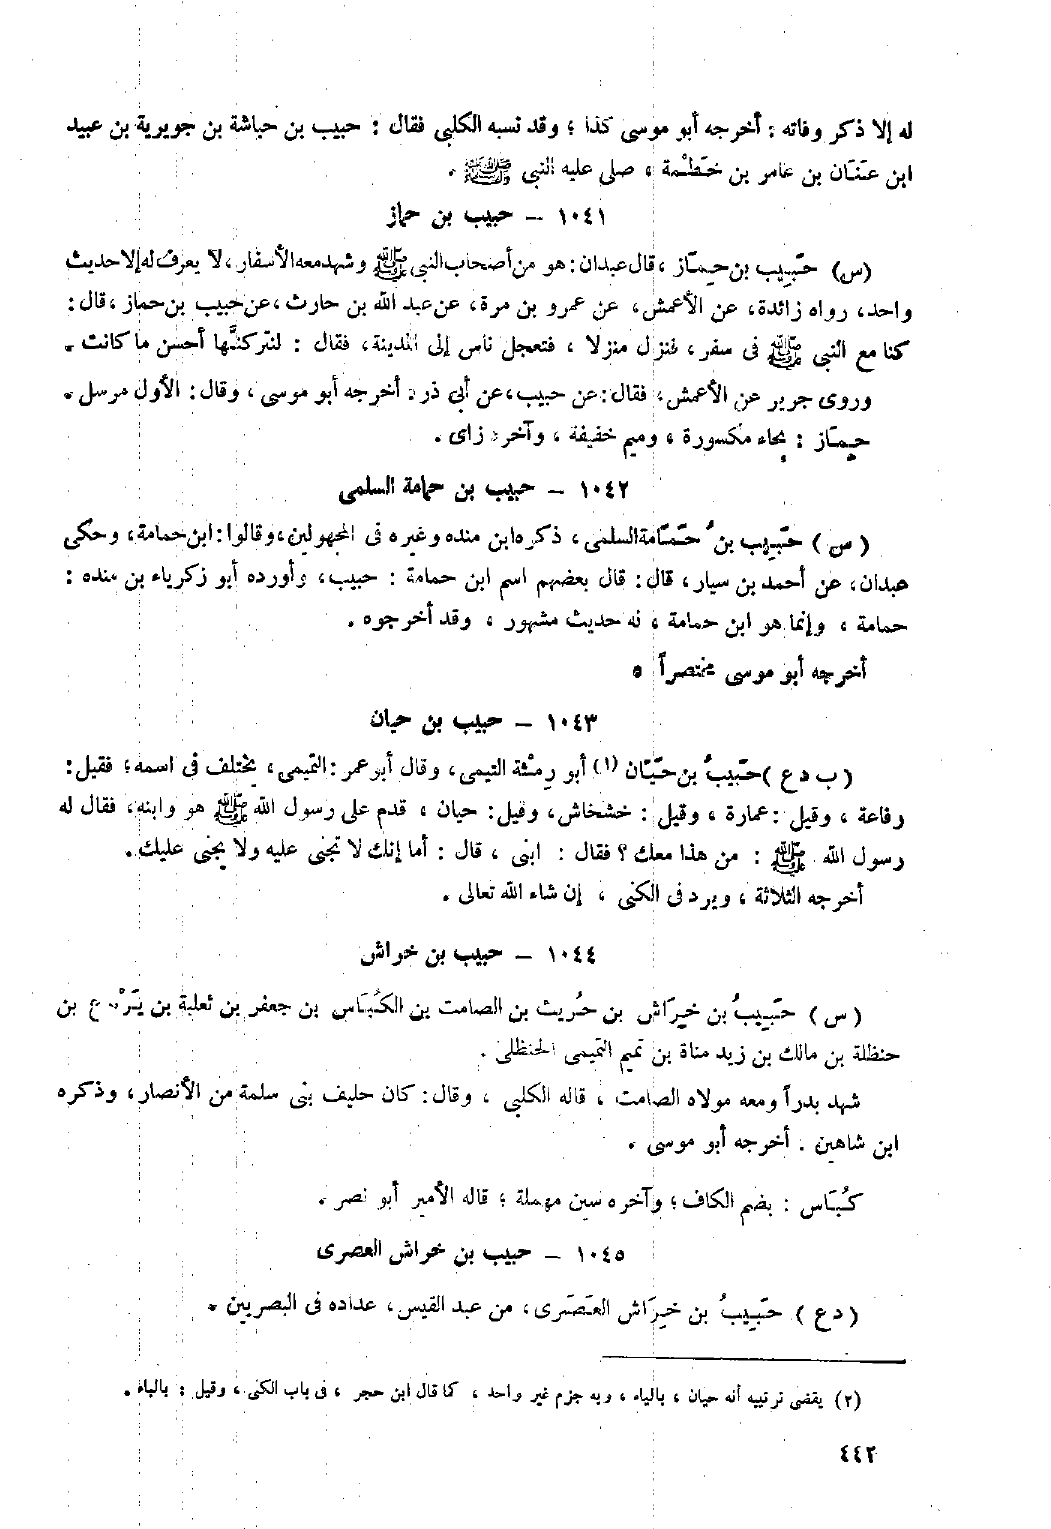 له إلا ذكر وفاته : أخرجه أبو موسى كذا ؛ وقد نسبه الكلبي فقال : حبيب بن حباشة بن جويرية بن عبيد
ابن عَنَان بن عامر بن خَطْمة ، صلى عليه النبى ﷺ .
١٠٤١ – حبيب بن حماز
(س) حَبِيب بن حِمَاز ، قال عبدان : هو من أصحاب النبى ﷺ وشهد معه الأسفار ، لا يعرف له إلا حديث
واحد ، رواه زائدة ، عن الأعمش ، عن عمرو بن مرة ، عن عبد الله بن حارث ، عن حبيب بن حماز ، قال :
كنا مع النبى ﷺ فى سفر ، فنزل منزلا ، فتعجل ناس إلى المدينة ، فقال : لنتركنَّها أحسن ما كانت .
وروى جرير عن الأعمش ، فقال : عن حبيب ، عن أبى ذر . أخرجه أبو موسى ، وقال : الأول مرسل .
حِمَاز : بحاء مكسورة ، وميم خفيفة ، وآخره زاى .
١٠٤٢ – حبيب بن حمامة السلمى
(س) حَبِيب بنُ حَمَامة السلمى ، ذكره ابن منده وغيره فى المجهولين ، وقالوا : ابن حمامة ، وحكى
عبدان ، عن أحمد بن سيار ، قال : قال بعضهم اسم ابن حمامة : حبيب ، وأورده أبو زكرياء بن منده :
حمامة ، وإنما هو ابن حمامة ، له حديث مشهور ، وقد أخرجوه .
أخرجه أبو موسى مختصراً .
١٠٤٣ – حبيب بن حيان
(ب د ع) حَبِيبُ بن حَيَّان (١) أبو رِمْثة التيمى ، وقال أبو عمر : التميمى ، يختلف فى اسمه ؛ فقيل :
رفاعة ، وقيل : عمارة ، وقيل : خشخاش ، وقيل : حيان ، قدم على رسول الله ﷺ هو وابنه ، فقال له
رسول الله ﷺ : من هذا معك ؟ فقال : ابنى ، قال : أما إنك لا تجنى عليه ولا يجنى عليك .
أخرجه الثلاثة ، ويرد فى الكنى ، إن شاء الله تعالى .
١٠٤٤ – حبيب بن خراش
(س) حَبِيبُ بن خِرَاش بن حُريث بن الصامت بن الكُبَاس بن جعفر بن ثعلبة بن يَرْبوع بن
حنظلة بن مالك بن زيد مناة بن تميم التميمى الحنظلى .
شهد بدراً ومعه مولاه الصامت ، قاله الكلبى ، وقال : كان حليف بنى سلمة من الأنصار ، وذكره
ابن شاهين . أخرجه أبو موسى .
كُبَاس : بضم الكاف ؛ وآخره سين مهملة ؛ قاله الأمير أبو نصر .
١٠٤٥ – حبيب بن خراش العصرى
(د ع) حَبِيبُ بن خِرَاش العَصَرى ، من عبد القيس ، عداده فى البصريين .
(٢) يقضى ترتيبه أنه حيان ، بالياء ، وبه جزم غير واحد ، كما قال ابن حجر ، فى باب الكنى ، وقيل : بالباء .
٤٤٢